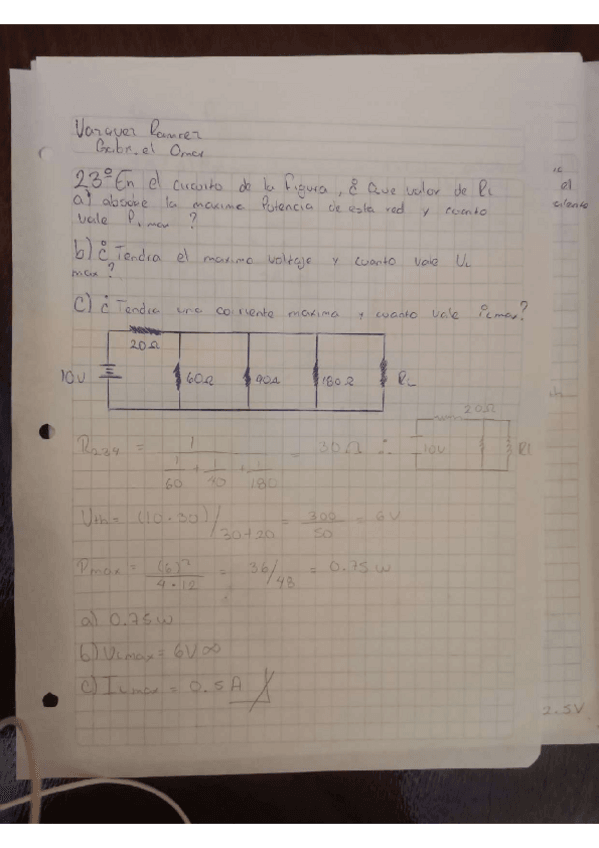 Vazquez Ramirez
Gabriel Omar
23º En el circuito de la figura, ¿ Que valor de RL
a) absorbe la maxima Potencia de esta red y cuanto
vale PLmax ?
b) ¿ Tendra el maximo voltaje y cuanto vale UL
max?
c) ¿ Tendra una corriente maxima y cuanto vale iLmax?
20Ω
10V
60Ω
90Ω
180Ω
RL
R234 = 1 / (1/60 + 1/90 + 1/180) = 30Ω ∴
20Ω
10V
Rl
Uth = (10·30)/30+20 = 300/50 = 6V
Pmax = (6)²/4·12 = 36/48 = 0.75w
a) 0.75w
b) ULmax = 6V ∞
c) ILmax = 0.5A
el
2.5V